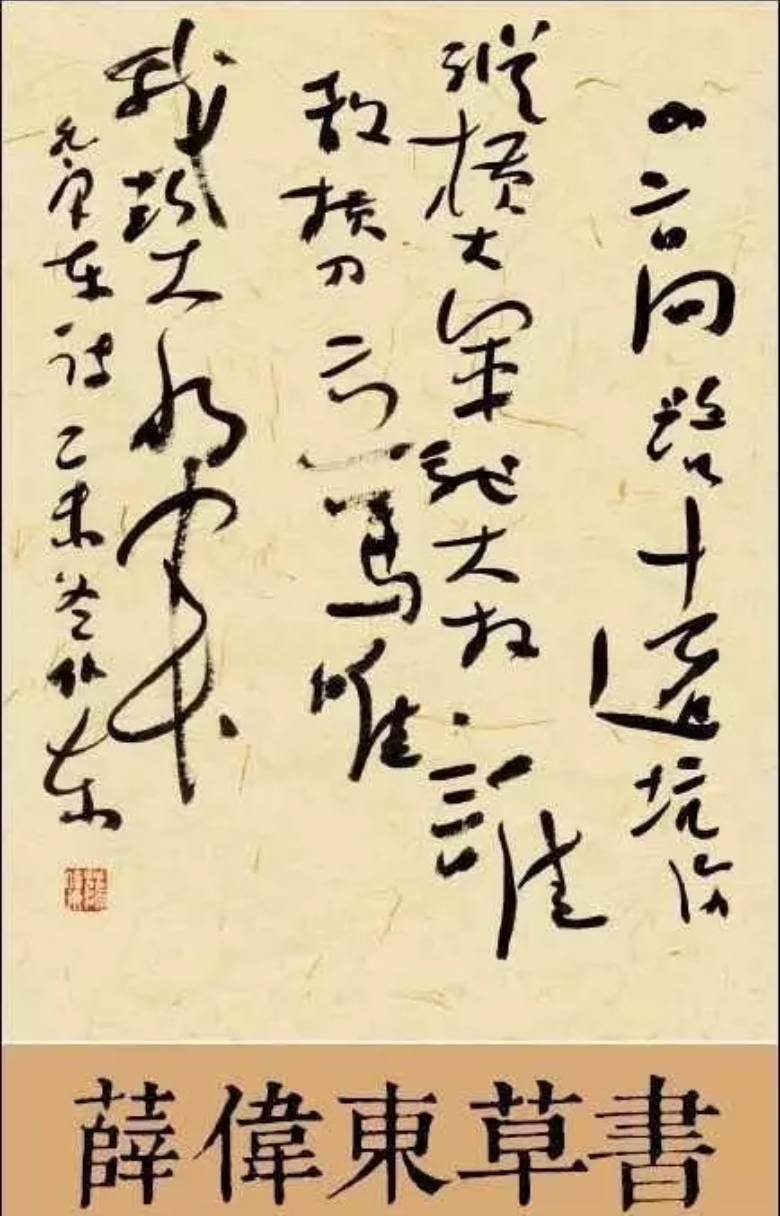 山高路遠坑深
縱橫大軍馳奔誰
敢橫刀立馬唯
我彭大將軍
毛澤东诗乙未冬伟东
薛偉東草書